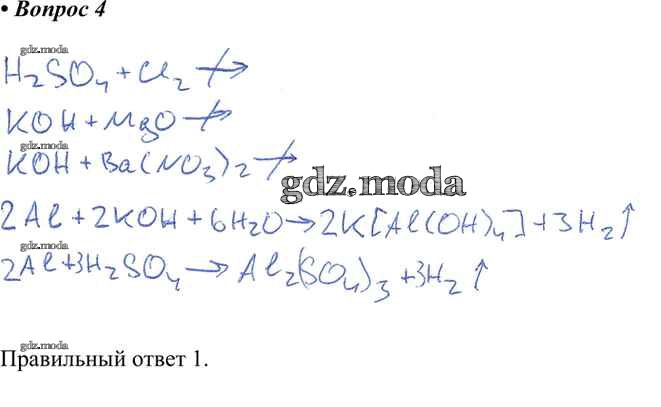 • Вопрос 4
gdz.moda
H₂SO₄ + Cl₂ ↛
gdz.moda
KOH + MgO ↛
gdz.moda
KOH + Ba(NO₃)₂ ↛
gdz.moda
2Al + 2KOH + 6H₂O → 2K[Al(OH)₄] + 3H₂↑
gdz.moda
2Al + 3H₂SO₄ → Al₂(SO₄)₃ + 3H₂↑
gdz.moda
Правильный ответ 1.